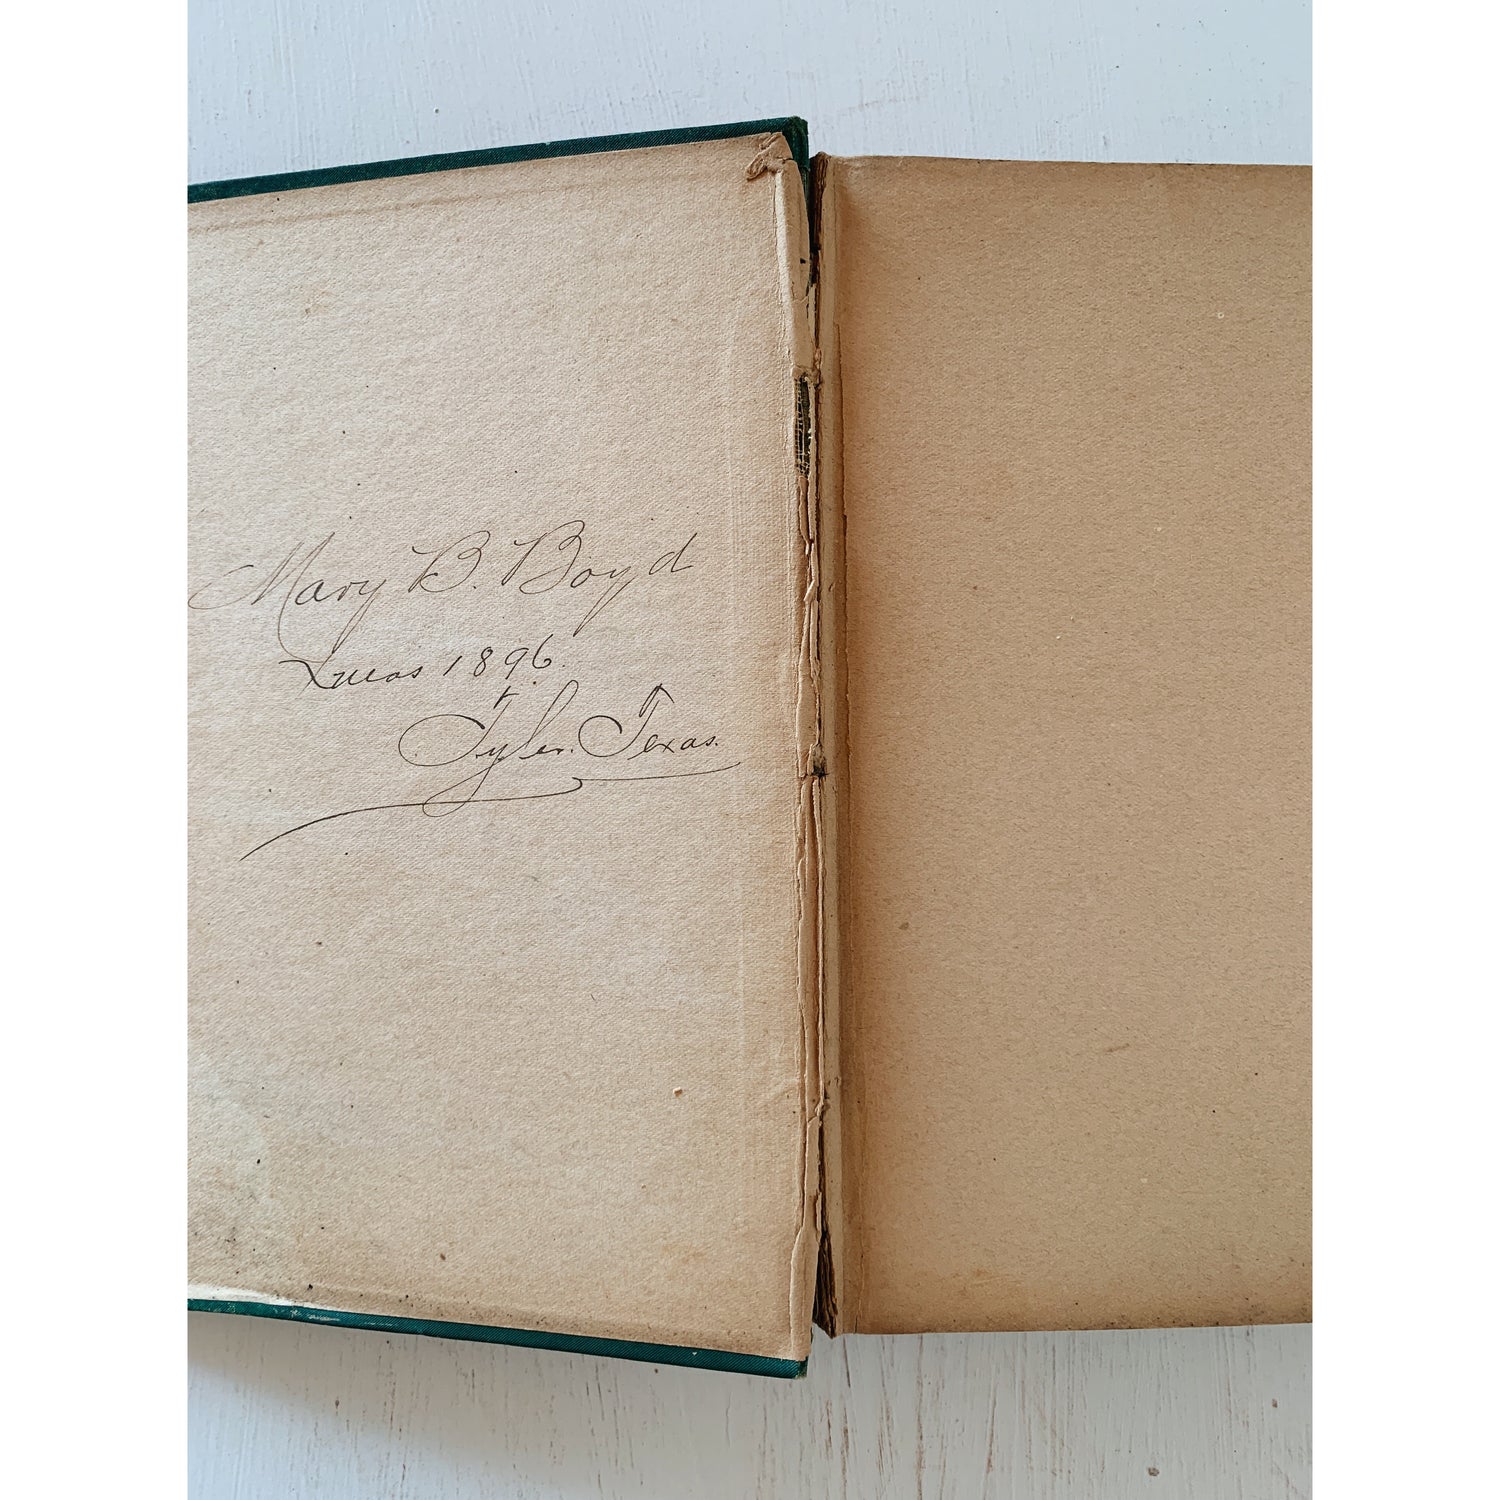 Mary B. Boyd
Lucas 1896.
Tyler. Texas.